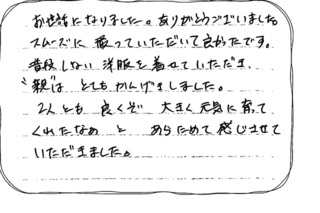 お世話になりました。ありがとうございました
スムーズに撮っていただいて良かったです。
普段しない洋服を着せていただき、
親は とてもかんげきしました。
2人とも 良くぞ 大きく元気に育って
くれたなぁ と あらためて 感じさせて
いただきました。